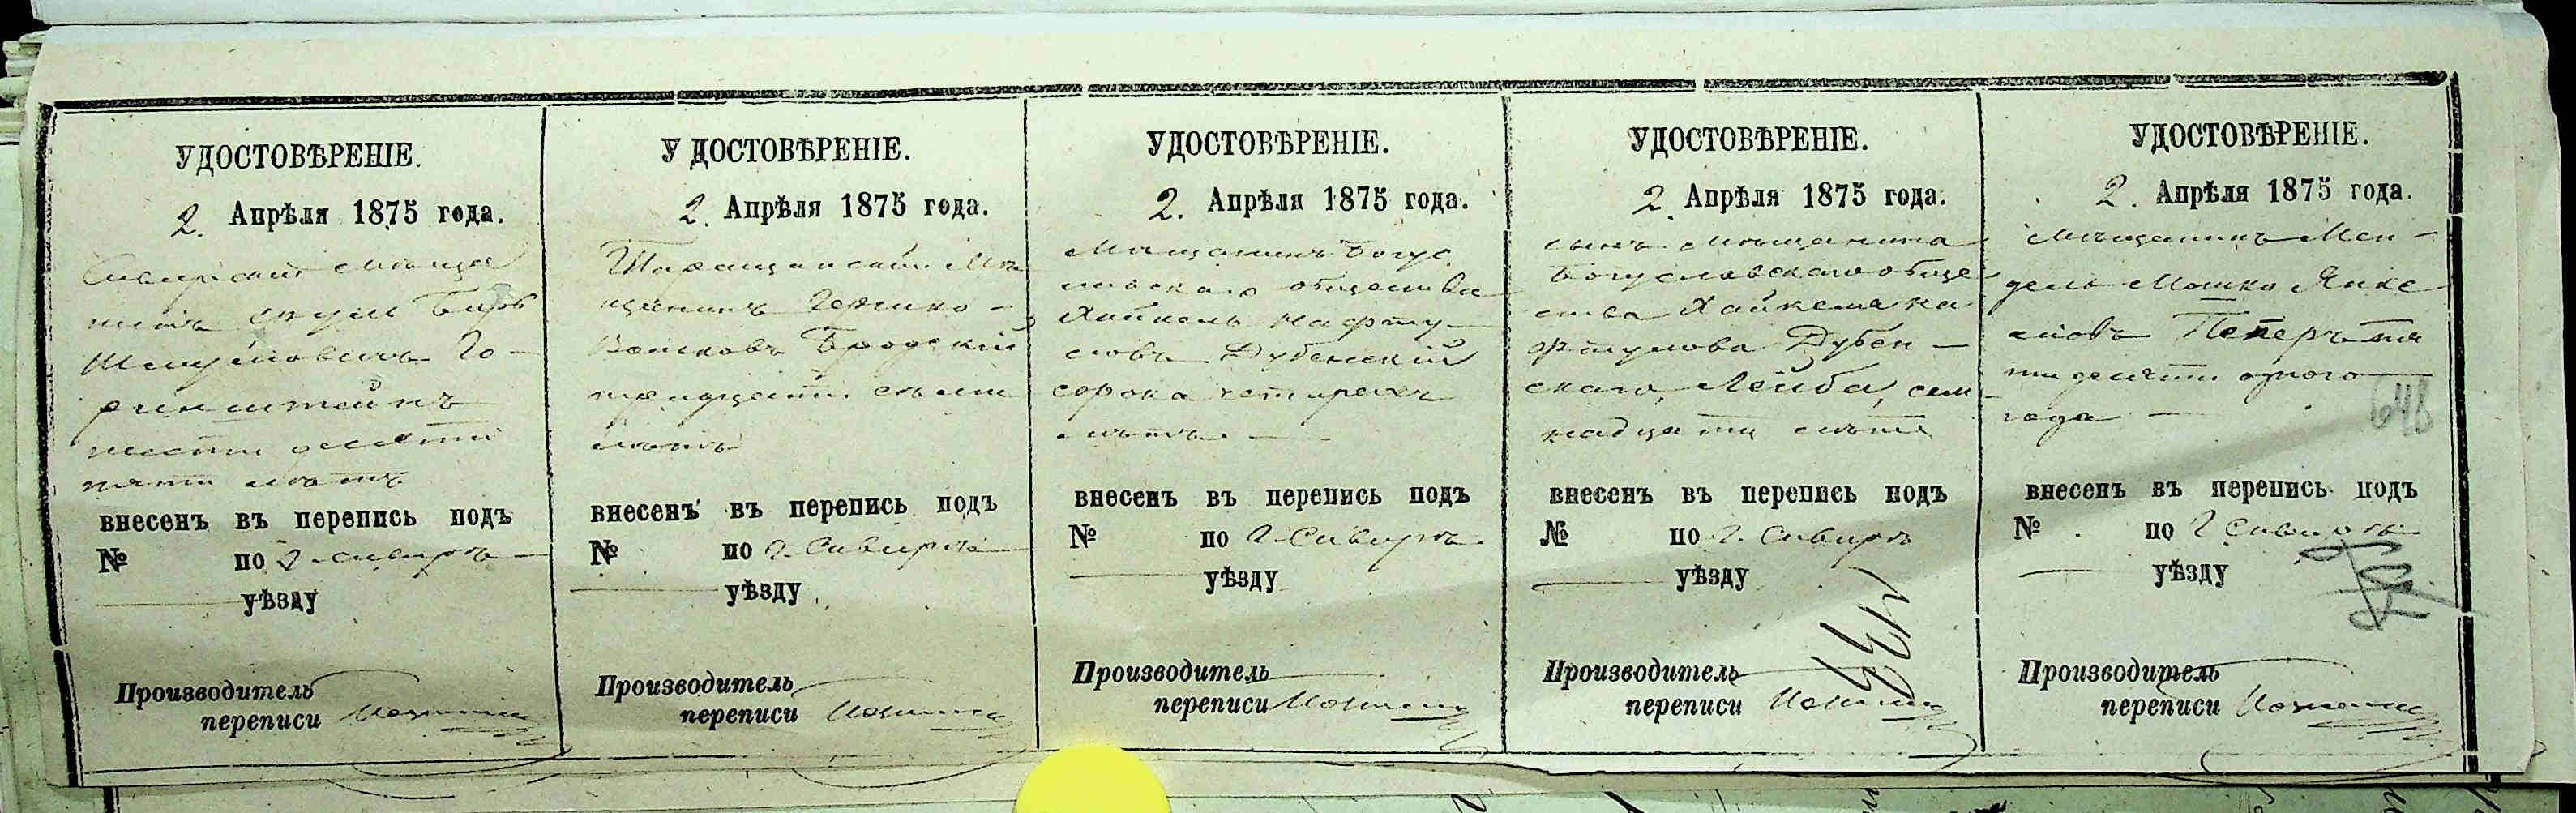 УДОСТОВѢРЕНІЕ.
2. Апрѣля 1875 года.
Сквирскій мѣща
нинъ
Шмулевичъ Го-
ринштейнъ
шесть десятъ
пяти лѣтъ
внесенъ въ перепись подъ
№ по г. Сквирѣ
уѣзду
Производитель
переписи
УДОСТОВѢРЕНІЕ.
2. Апрѣля 1875 года.
Таращанскій Мѣ
щанинъ Гершко-
Волковъ Бродскій
тридцати семи
лѣтъ
внесенъ въ перепись подъ
№ по г. Сквирѣ
уѣзду
Производитель
переписи
УДОСТОВѢРЕНІЕ.
2. Апрѣля 1875 года.
Мѣщанинъ Богус
лавскаго общества
Хайкель Нафту-
ловъ Дубенскій
сорока четырехъ
лѣтъ
внесенъ въ перепись подъ
№ по г. Сквирѣ
уѣзду
Производитель
переписи
УДОСТОВѢРЕНІЕ.
2. Апрѣля 1875 года.
сынъ мѣщанина
Богуславскаго обще
ства Хайкеля На
фтулова Дубен-
скаго, Лейба, сем
надцати лѣтъ
внесенъ въ перепись подъ
№ по г. Сквирѣ
уѣзду
Производитель
переписи
УДОСТОВѢРЕНІЕ.
2. Апрѣля 1875 года.
Мѣщанинъ Мен-
дель Мошко Янке
левъ Пекеръ пя
ти десяти одного
года
648
внесенъ въ перепись подъ
№ по г. Сквирѣ
уѣзду
Производитель
переписи